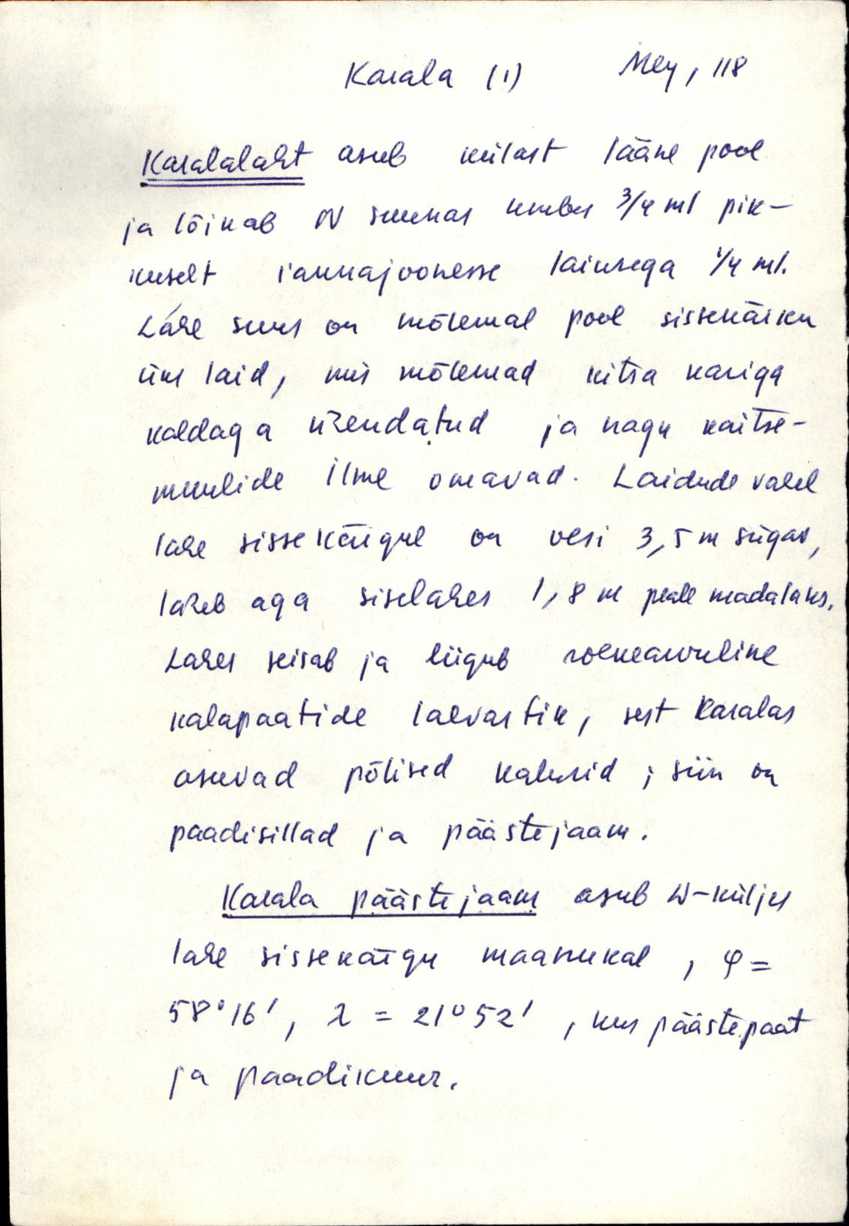 Karala (1) Mey, 118
Karalalaht asub külast lääne pool
ja lõikab N suunas umbes 3/4 ml pik-
kuselt rannajoonesse laiusega 1/4 ml.
Lahe suus on mõlemal pool sissekäiku
üks laid, mis mõlemad kitsa kariga
kaldaga ühendatud ja nagu kaitse-
muulide ilme omavad. Laidude vahel
lahe sissekäigul on vesi 3,5 m sügav,
läheb aga siselahes 1,8 m peale madalaks.
Lahes seisab ja liigub roeneavuline
kalapaatide laevastik, sest Karalas
asuvad põlised kalurid; siin on
paadisillad ja päästejaam.
Karala päästejaam asub W-küljes
lahe sissekäigu maanukal, φ =
58°16', λ = 21°52', kus päästepaat
ja paadikuur.